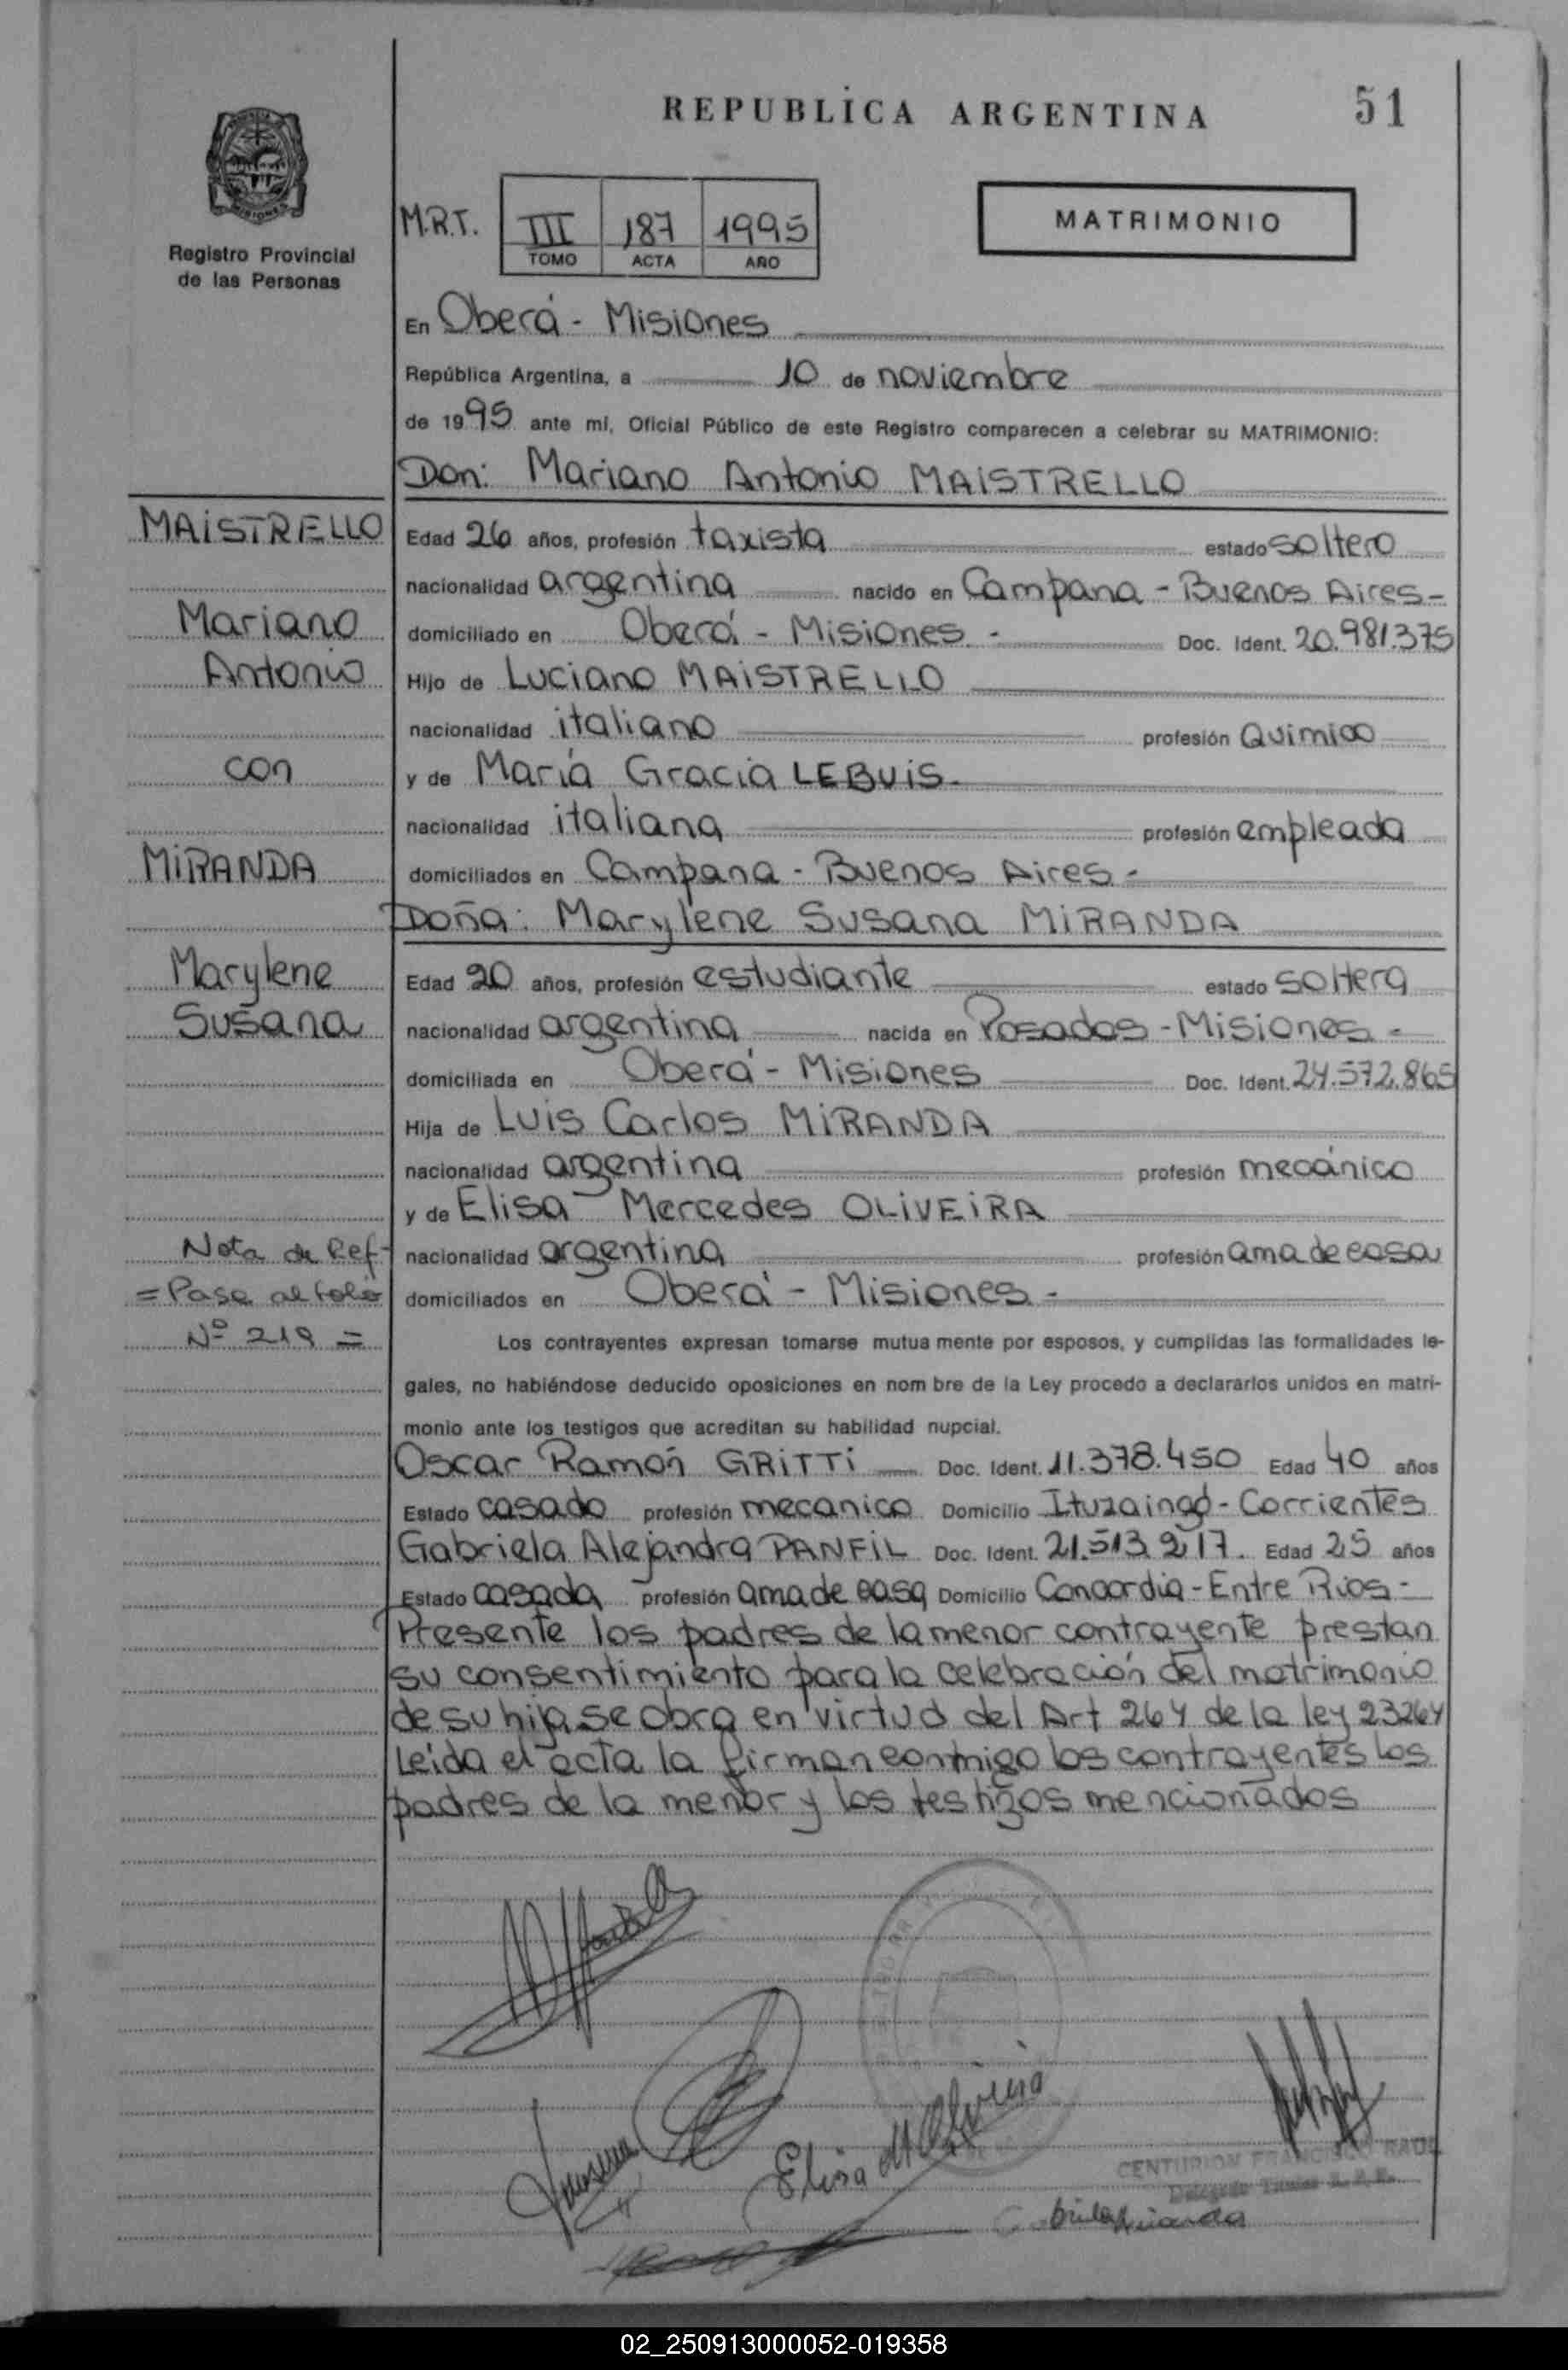 REPUBLICA ARGENTINA
51
MISIONES
Registro Provincial
de las Personas
M.R.T.
III 187 1995
TOMO ACTA AÑO
MATRIMONIO
En Oberá - Misiones
República Argentina, a 10 de noviembre
de 1995 ante mí, Oficial Público de este Registro comparecen a celebrar su MATRIMONIO:
Don: Mariano Antonio MAISTRELLO
MAISTRELLO
Edad 26 años, profesión taxista estado soltero
nacionalidad argentina nacido en Campana - Buenos Aires -
Mariano
domiciliado en Oberá - Misiones - Doc. Ident. 20.981.375
Antonio
Hijo de Luciano MAISTRELLO
nacionalidad italiano profesión Quimico
con
y de María Gracia LEBUIS -
nacionalidad italiana profesión empleada
MIRANDA
domiciliados en Campana - Buenos Aires -
Doña: Marylene Susana MIRANDA
Marylene
Edad 20 años, profesión estudiante estado soltera
Susana
nacionalidad argentina nacida en Posadas - Misiones -
domiciliada en Oberá - Misiones Doc. Ident. 24.572.865
Hija de Luis Carlos MIRANDA
nacionalidad argentina profesión mecánico
y de Elisa Mercedes OLIVEIRA
Nota de Ref-
nacionalidad argentina profesión ama de casa
= Pase al folio
domiciliados en Oberá - Misiones -
Nº 219 =
Los contrayentes expresan tomarse mutua mente por esposos, y cumplidas las formalidades le-
gales, no habiéndose deducido oposiciones en nom bre de la Ley procedo a declararlos unidos en matri-
monio ante los testigos que acreditan su habilidad nupcial.
Oscar Ramón GRITTI Doc. Ident. 11.378.450 Edad 40 años
Estado casado profesión mecanico Domicilio Ituzaingó - Corrientes
Gabriela Alejandra PANFIL Doc. Ident. 21.513.217. Edad 25 años
Estado casada profesión ama de casa Domicilio Concordia - Entre Rios -
Presente los padres de la menor contrayente prestan
su consentimiento para la celebración del matrimonio
de su hija se obra en virtud del Art 264 de la ley 23264
Leida el acta la firman conmigo los contrayentes los
padres de la menor y los testigos mencionados
Elisa M Oliveira
CENTURION FRANCISCO RAUL
Delegado Titular R.P.P.
02_250913000052-019358